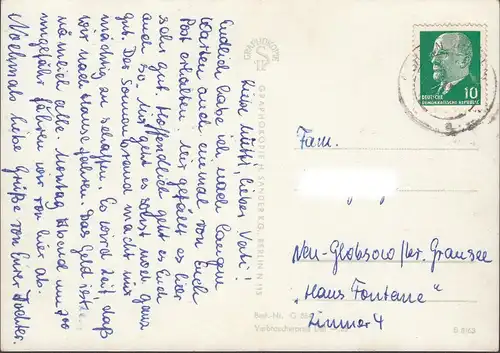 Liebe Mutti, lieber Vati!
Endlich habe ich, nach langem
Warten auch einmal von Euch
Post erhalten. Mir gefällt es hier
sehr gut. Hoffentlich geht es Euch
auch so. Mir geht es sonst noch ganz
gut. Der Sonnenbrand macht mir
mächtig zu schaffen. Es wird Zeit, daß
wir nach Hause fahren. Das Geld ist
nämlich alle. Montag Abend um 7⁰⁰
ungefähr fahren wir von hier ab.
Nochmals liebe Grüße von Eurer Tochter.
GRAPHOKOPIE
GRAPHOKOPIE H. SANDER K.G., BERLIN N 113
Best.-Nr. G
Verbraucherpreis
10
DEUTSCHE
DEMOKRATISCHE REPUBLIK
Fam.
Neu-Globsow/kr. Gransee
„Haus Fontane"
Zimmer 4
S 8/63